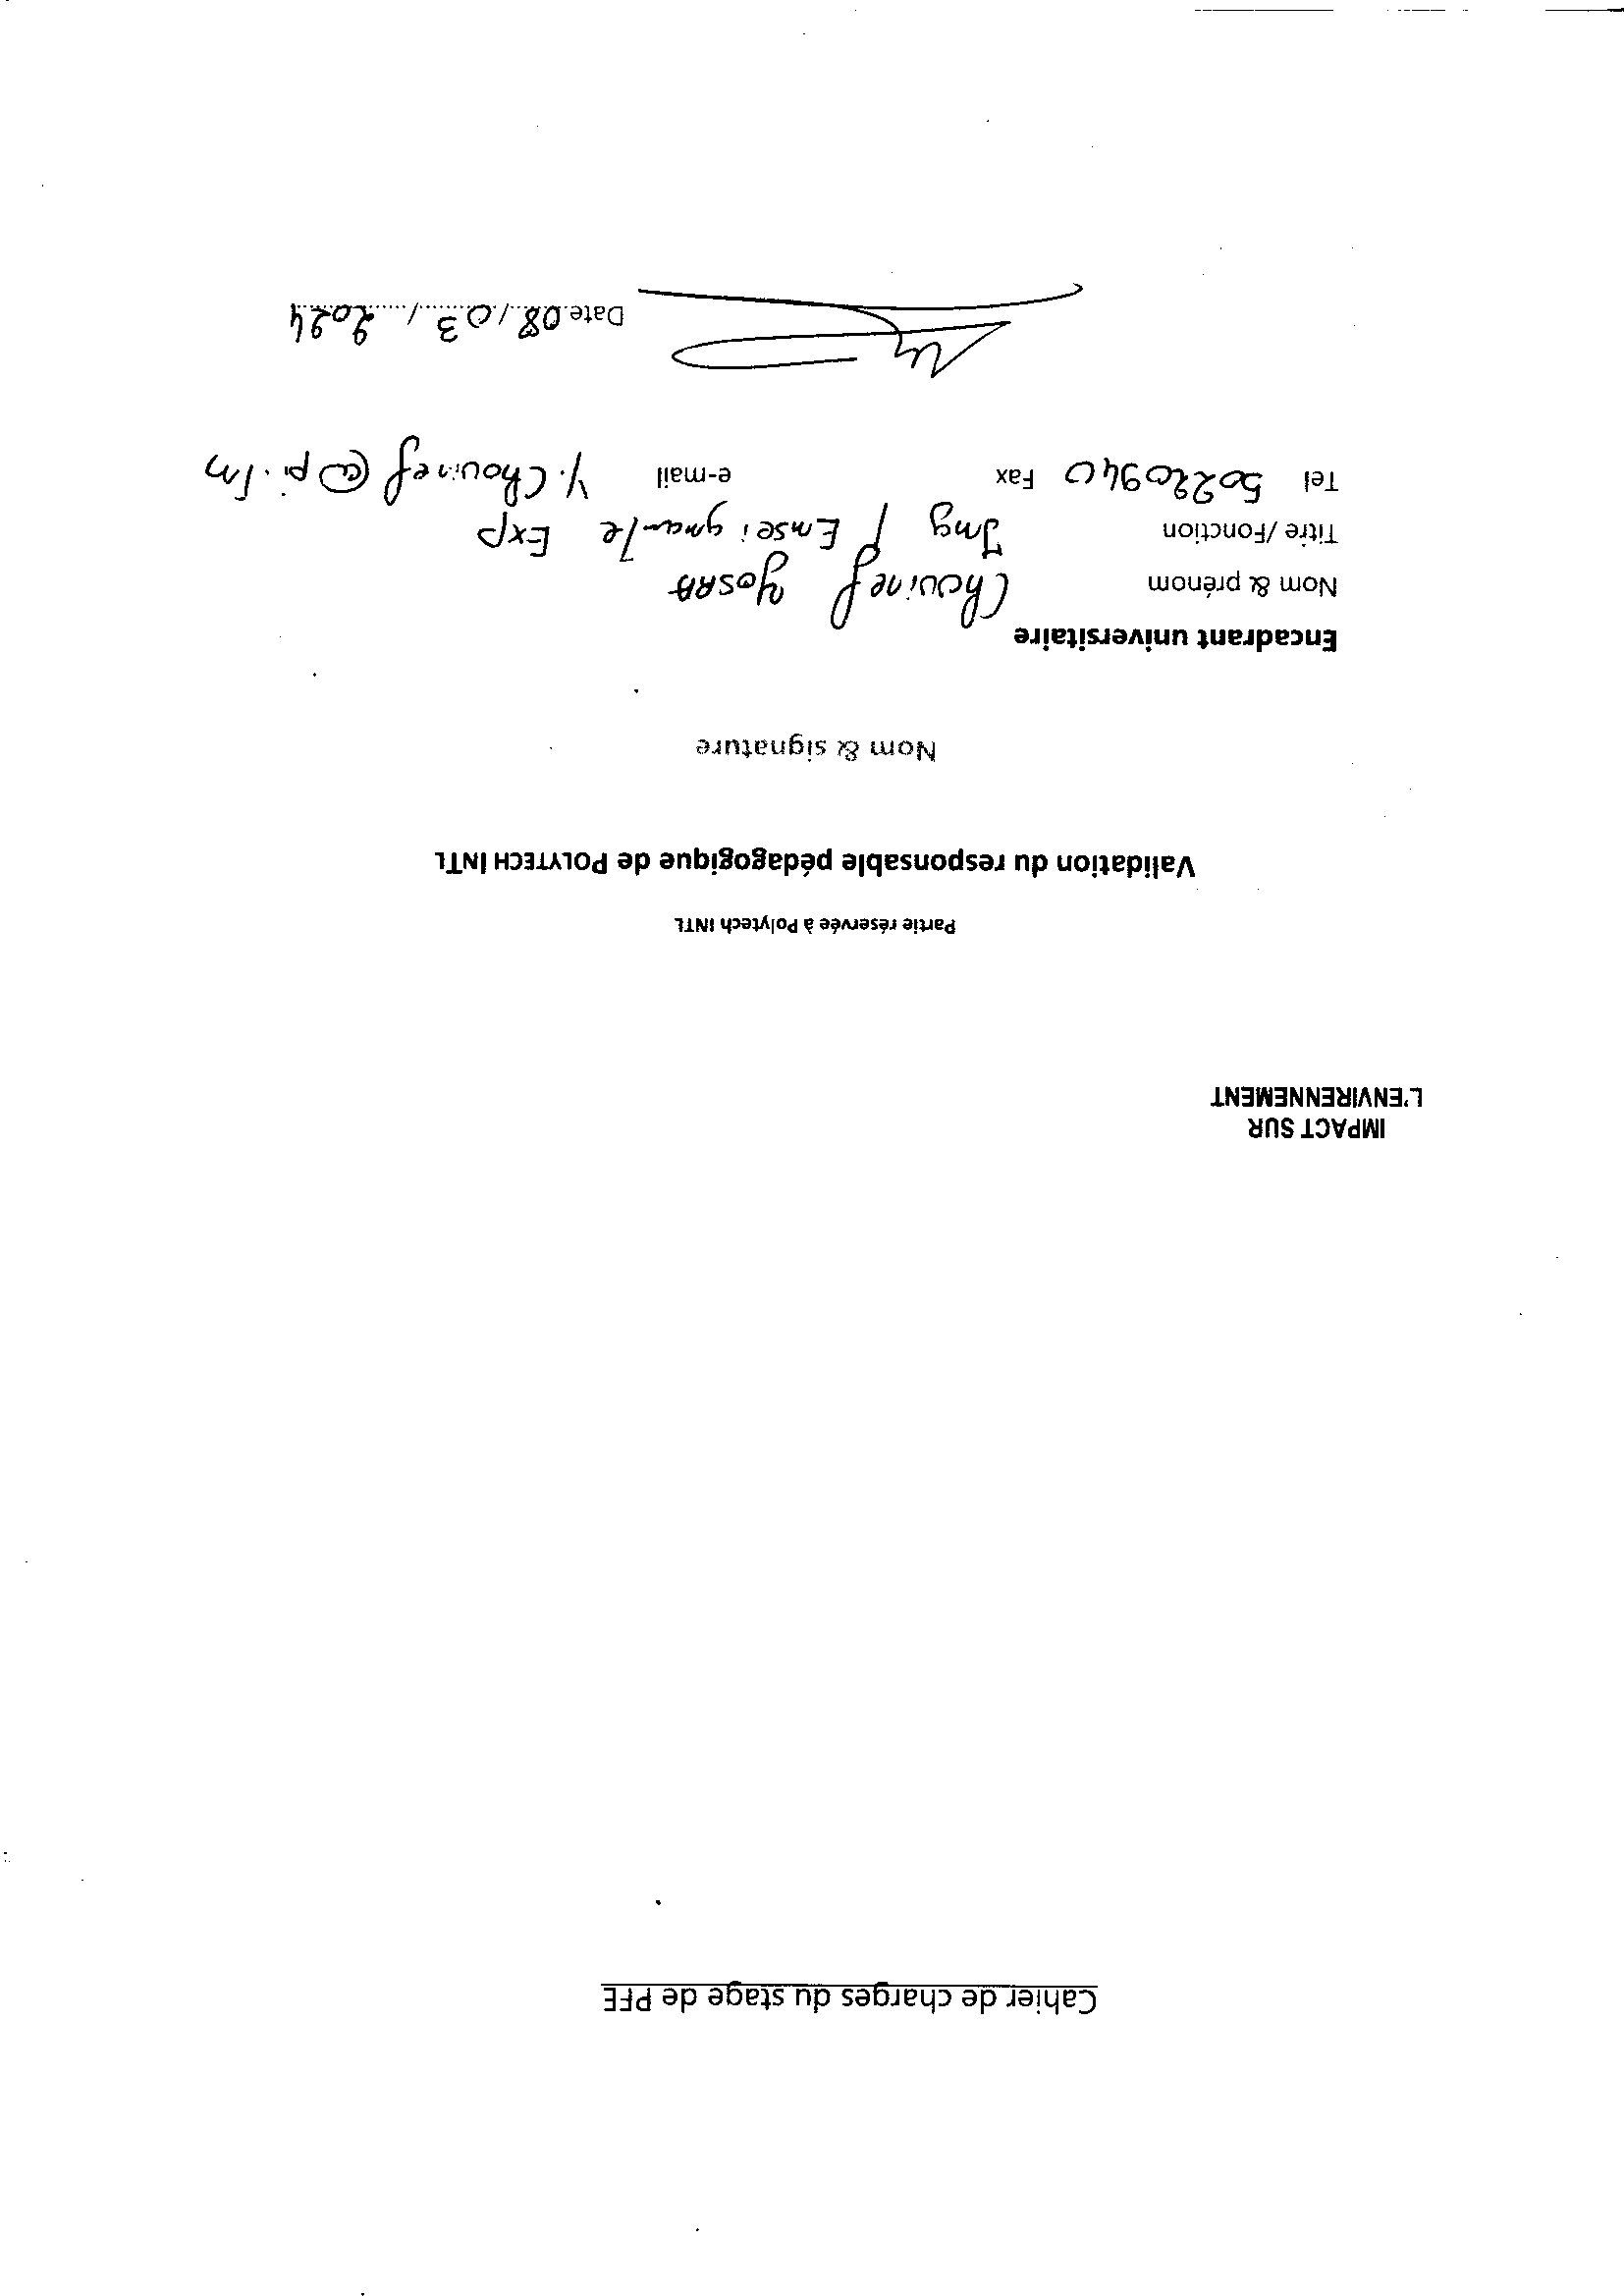 Cahier de charges du stage de PFE
IMPACT SUR
L'ENVIRENNEMENT
Partie réservée à Polytech INTL
Validation du responsable pédagogique de POLYTECH INTL
Nom & signature
Encadrant universitaire
Nom & prénom Chouinef YOSRA
Titre /Fonction Ing / Enseignante Exp
Tel 50220940 Fax e-mail y.Chouinef@pi.tn
Date 08/03/2024